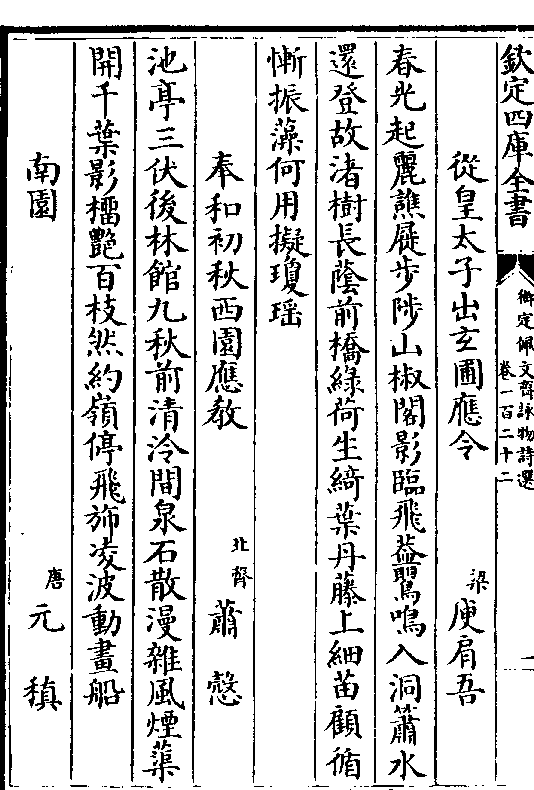 欽定四庫全書
御定佩文齋詠物詩選
卷一百二十二
一
從皇太子出玄圃應令
梁
庾肩吾
春光起麗譙屣步陟山椒閣影臨飛葢鶯鳴入洞簫水
還登故渚樹長蔭前橋綠荷生綺葉丹藤上細苗顧循
慚振藻何用擬瓊瑶
奉和初秋西園應教
北齊
蕭慤
池亭三伏後林館九秋前清泠間泉石散漫雜風煙蕖
開千葉影橊艷百枝然約嶺停飛斾凌波動畫船
南園
唐
元稹